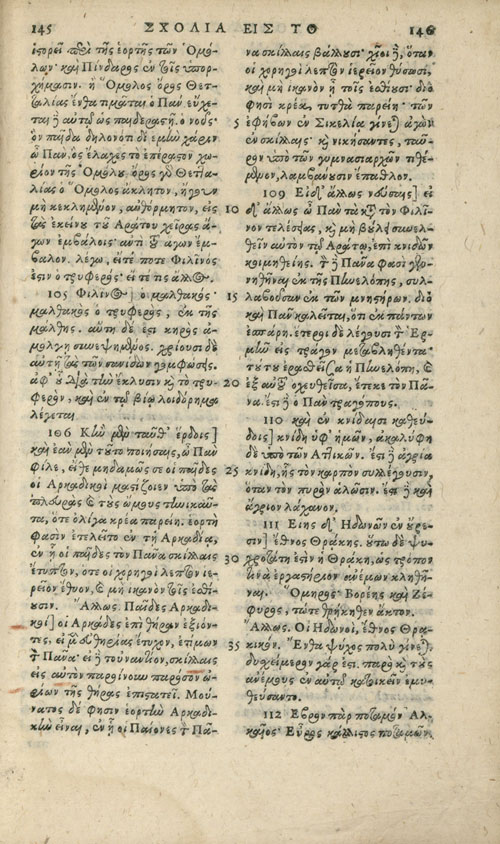 145 ΣΧΟΛΙΑ ΕΙΣ ΤΟ 146
ἱστορεῖ περὶ τῆς ἑορτῆς τῶν Ὁμό-
λων· καὶ Πίνδαρος ἐν τοῖς ὑπορ-
χήμασιν. ἢ Ὅμολος ὄρος Θετ-
ταλίας ἔνθα τιμᾶται ὁ Πάν. εὔχε-
ται δὲ αὐτῷ ὡς παιδεραστῇ. ὁ νοῦς·
ὃν παῖδα δηλονότι δι' ἐμὴν χάριν
ὦ Πὰν, ὃς ἔλαχες τὸ ἐπέραστον χω-
ρίον τῆς Ὁμόλου ὄρους τοῦ Θετταλίας
ὁ Ὅμολος ἄκλητον, ἤγουν
μὴ κεκλημένον, αὐθόρμητον, εἰς
τὰς ἐκείνου τοῦ Ἀράτου χεῖρας ἄ-
γων ἐμβάλοις· ἀντὶ τοῦ ἄγων ἔμ-
βαλον. λέγω, εἴτέ ποτε Φιλῖνός
ἐστιν ὁ τρυφερὸς· εἴτε τις ἄλλος.
105 Φιλῖνος] ὁ μαλθακός·
μαλθακὸς ὁ τρυφερὸς, ἐκ τῆς
μάλθης. αὕτη δέ ἐστι κηρὸς ἀ-
μόλγῃ συνεψημένος. χρίουσι δὲ
αὐτῇ τὰς τῶν σανίδων γομφώσεις.
ἀφ' οὗ διὰ τὴν ἔκλυσιν καὶ τὸ τρυ-
φερὸν, καὶ ἐν τῷ βίῳ λοιδόρημα
λέγεται.
106 Κἢν μὲν ταῦθ' ἔρδοις]
καὶ ἐὰν μὲν τοῦτο ποιήσαις, ὦ Πὰν
φίλε, εἴθε μηδαμῶς σε οἱ παῖδες
οἱ Ἀρκαδικοὶ μαστίζοιεν ὑπὸ τὰς
πλευρὰς καὶ τοὺς ὤμους τηνικαῦ-
τα, ὅτε ὀλίγα κρέα παρείη. ἑορτὴ
φασὶν ἐτελεῖτο ἐν τῇ Ἀρκαδίᾳ,
ἐν ᾗ οἱ παῖδες τὸν Πᾶνα σκίλλαις
ἔτυπτον, ὅτε οἱ χορηγοὶ λεπτὸν ἱε-
ρεῖον ἔθυον, καὶ μὴ ἱκανὸν τοῖς ἐσθί-
ουσιν. Ἄλλως. Παῖδες Ἀρκαδι-
κοὶ] οἱ Ἀρκάδες ἐπὶ θήραν ἐξιόν-
τες, εἰ μὲν εὐθηρίας ἔτυχον, ἐτίμων
τὸν Πᾶνα· εἰ δὲ τοὐναντίον, σκίλλαις
εἰς αὐτὸν παρῴνουν παρόσον ὄ-
ρειον τῆς θήρας ἐπιστατεῖ. Μού-
νατος δέ φησιν ἑορτὴν Ἀρκαδι-
κὴν εἶναι, ἐν ᾗ οἱ Παίονες τὸν Πᾶ-
να σκίλλαις βάλλουσι· χῖοι δὲ, ὅταν
οἱ χορηγοὶ λεπτὸν ἱερεῖον θύσωσι,
καὶ μὴ ἱκανὸν ᾖ τοῖς ἐσθίουσι· διό
φησι κρέα τυτθὰ παρείη· τῶν
5 ἐφήβων ἐν Σικελίᾳ γίνεται ἀγὼν
ἐν σκίλλαις· καὶ νικήσαντες, ταῦ-
ρον ὑπὸ τῶν γυμνασιαρχῶν τιθέ-
μενον, λαμβάνουσιν ἔπαθλον.
109 Εἰ δ' ἄλλως νεύσαις] εἰ
10 δ' ἄλλως ὦ Πὰν τὰ κατὰ τὸν Φιλῖ-
νον τελέσῃς, καὶ μὴ βουληθῇς συνελ-
θεῖν αὐτὸν τῷ Ἀράτῳ, ἐπὶ κνιδῶν
κοιμηθείης. τὸν δὲ Πᾶνα φασὶ γεν-
νηθῆναι ἐκ τῆς Πηνελόπης, συλ-
15 λαβούσαν ἐκ τῶν μνηστήρων. διὸ
καὶ Πὰν καλεῖται, ὅτι ἐκ πάντων
ἐσπάρη. ἕτεροι δὲ λέγουσι τὸν Ἑρ-
μῆν εἰς τράγον μεταβληθέντα·
τούτου ἐρασθεῖσα ἡ Πηνελόπη, καὶ
20 ἐξ αὐτοῦ ὀχευθεῖσα, ἔτεκε τὸν Πᾶ-
να. ἔστι δὲ ὁ Πὰν τραγόπους.
110 καὶ ἐν κνίδαισι καθεύ-
δοις] κνίδη ὑφ' ἡμῶν, ἀκαλύφη
δὲ ὑπὸ τῶν Ἀττικῶν. ἔστι δὲ ἀγρία
25 κνίδη, ἧς τὸν καρπὸν συλλέγουσιν,
ὅταν τὸν πυρὸν ἀλῶσιν. ἔστι δὲ καὶ
ἄγριον λάχανον.
111 Εἴης δ' Ἠδωνῶν ἐν οὔρε-
σιν] ἔθνος Θρᾴκης. οὕτω δὲ ψυ-
30 χροτάτη ἐστὶν ἡ Θρᾴκη, ὡς τρόπον
τινὰ ἐργαστήριον ἀνέμων κληθῆ-
ναι. Ὅμηρος· Βορέης καὶ Ζέ-
φυρος, τώτε Θρῄκηθεν ἄητον.
Ἄλλως. Οἱ Ἠδωνοὶ, ἔθνος Θρᾳ-
35 κικόν. Ἔνθα ψύχος πολὺ γίνεται.
δυσχείμερον γάρ ἐστι. παρὸ καὶ τοὺς
ἀνέμους ἐν αὐτῷ κατοικεῖν ἐμυ-
θεύσαντο.
112 Ἕβρον πὰρ ποταμόν] Ἀλ-
καῖος· Εὗρος κάλλιστος ποταμῶν